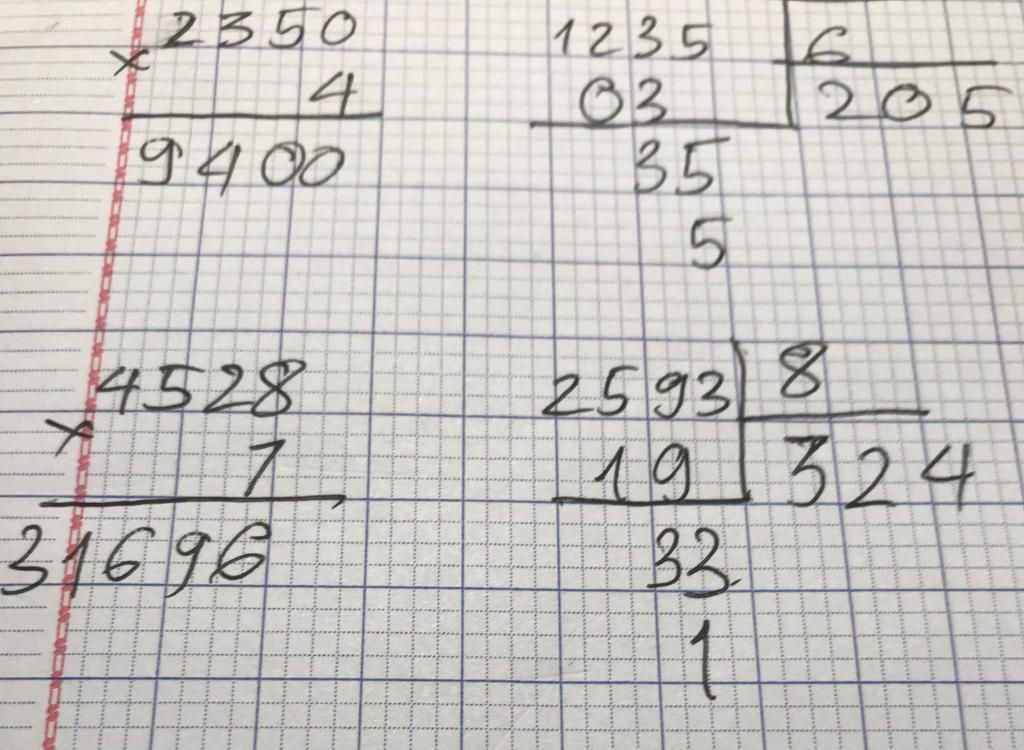 2350
× 4
9400
1235 6
03 205
35
5
4528
× 7
31696
2593 8
19 324
33
1